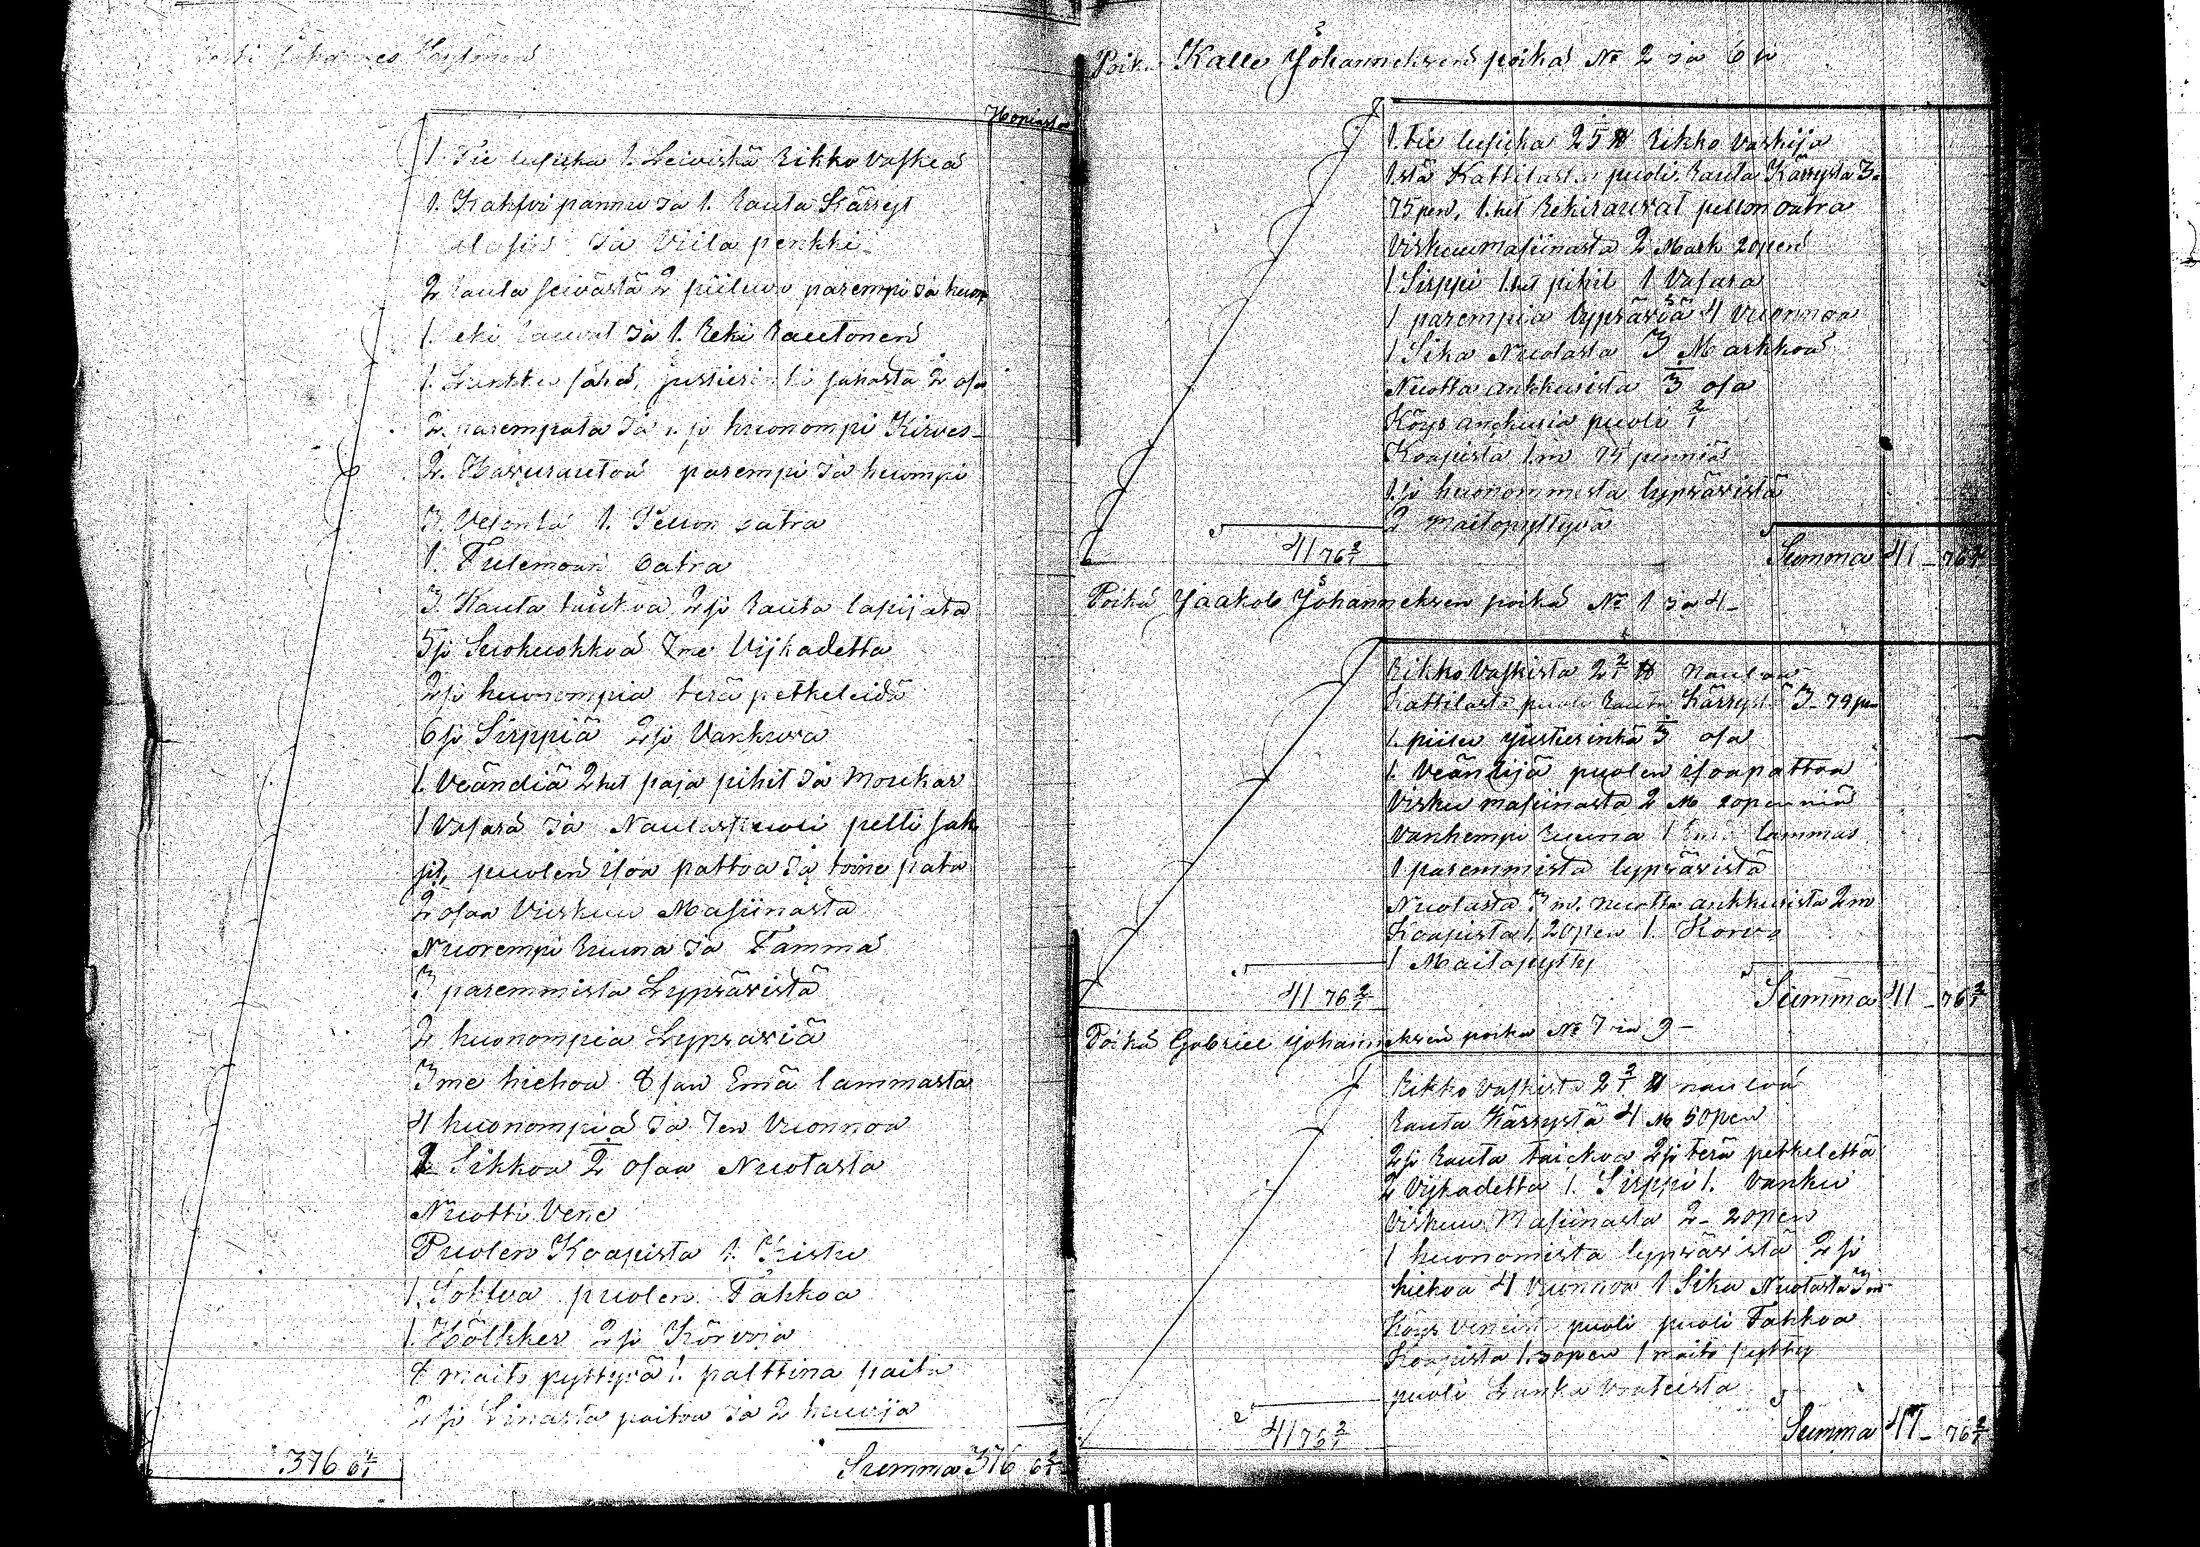 Hopiasta
1. Tie lusikka 1. Leiviskä Rikko vaskea
1. Kahvi pannu ja 1. Rauta Kärryt
ja Viila penkki
2 Rauta seivästä 2 piiluva parempi ja huon
1. Reki Rauvat ja 1. Reki Rautonen
1. Lunkku saha, justieri sahasta 2 osa
2. parempata ja 1. si huonompi Kirves
2. Havurautoa parempi ja huompi
3. 1. Pellon oatra
1. Tulemoan oatra
3. Rauta 2 si Rauta lapijata
5 si Suokuokkoa 7me Vijkadetta
2 si huonompia terä petkeleitä
6 si Sirppiä 2 si Vankuva
1. Veändiä 2 het paja pihit ja Moukar
1 Vasara ja Naulas puoli pelti sak
sit, puolen isoa pattoa ja toine pata
2 osaa Viskuu Masiinasta
Nuorempi Ruuna ja Tamma
3 paremmista Lypsävistä
2 huonompia Lypsäviä
3me hiehoa 8 san Emä lammasta
4 huonompia ja 7en Vuonnoa
2 Sikkoa 2 osaa Nuotasta
Nuotti Vene
Puolen Koapista 1. Kistu
1. Sohva puolen Tahkoa
1. Hölkker 2 si Körvvia
8 maito pyttyvä 1. palttina paita
2 si Linasta paitoa ja 2 huuvia
376 6
Summa 376 6
Poika Kalle Johanneksen poika No 2 ja 6
1. tie lusikka 25 Rikko vaskija
1stä Kattilasta puoli Rauta Kärrystä 3.
75 pen, 1. het Rekirauvat pellon oatra
Viskuumasiinasta 2 Mark 20 pen
1 Sirppi 1. het pihit 1 Vasara
1 parempia lypsäviä 4 Vuonnoa
1 Sika Nuotasta 3 Markkoa
Nuotta ankkurista 3 osa
Köys anckuria puoli
Koapista 1. m 75 penniä
1. si huonommista lypsävistä
2 maitopyttyvä
41 76 2/1
Summa 41 - 76 2/1
Poika Jaakob Johanneksen poika No 1 ja 4 -
Rikko Vaskista 2 2/1 Naulaa
Kattilasta puoli Rauta Kärrystä 3 - 79 pen
1. piilu justierinkä 3 osa
1. Veäntijä puolen isoapattoa
Visku masiinasta 2 M 20 penniä
Vanhempi Ruuna 1 Emä lammas
1 paremmista lypsävistä
Nuotasta 3 m. nuotta ankkurista 2 m
Koapista 1, 20 pen 1. Korvo
1 Maitopytty
41 76 2/1
Summa 41 - 76 2/1
Poika Gabriel Johanneksen poika No 7 ja 9 -
Rikko Vaskista 2 2/1 naulaa
Rauta Kärrystä 4 M 50 pen
2 si Rauta taickoa 2 si terä petkelettä
2 Vijkadetta 1. Sirppi 1. Vanku
Viskuu Masiinasta 2 - 20 pen
1 huonomista lypsävistä 2 si
hiehoa 4 Vuonnoa 1 Sika Nuotasta 3 m
Köys puoli puoli Tahkoa
Koapista 1. 30 pen 1 maito pytty
puoli Lanka Vaateista
41 76 2/1
Summa 41 - 76 2/1